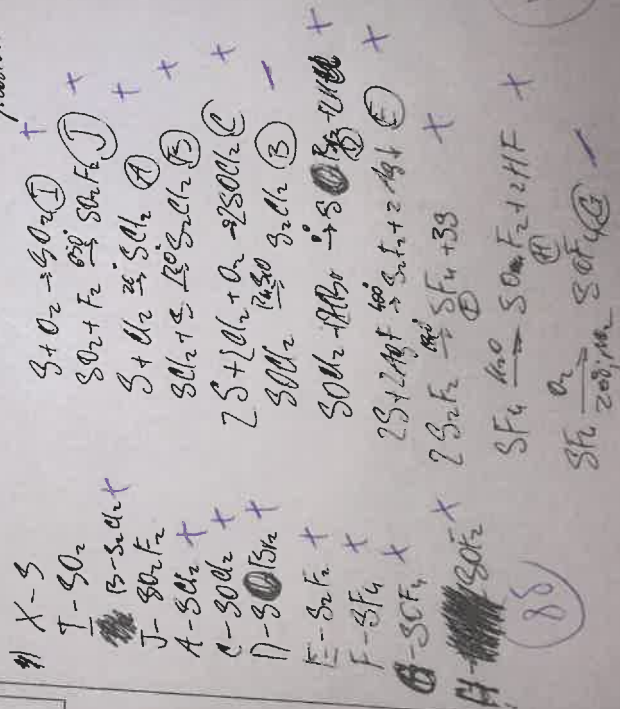 4) X - S
I - SO₂
B - S₂Cl₂ +
J - SO₂F₂
A - SCl₂ +
C - SOCl₂ +
D - SOBr₂ +
E - S₂F₂ +
F - SF₄ +
G - SOF₄ +
H - SOF₂ +
8б
S + O₂ → SO₂ (I) +
SO₂ + F₂ → SO₂F₂ (J) +
S + Cl₂ → SCl₂ (A) +
SCl₂ + S → S₂Cl₂ (B) +
2S + 2Cl₂ + O₂ → 2SOCl₂ (C) +
SOCl₂ → S₂Cl₂ (B) −
SOCl₂ + 2HBr → SOBr₂ + 2HCl +
(D)
2S + 2AgF → S₂F₂ + 2Ag (E) +
2S₂F₂ → SF₄ + 3S +
(F)
SF₄ H₂O → SOF₂ + 2HF +
(H)
SF₄ O₂ → SOF₄ (G) −